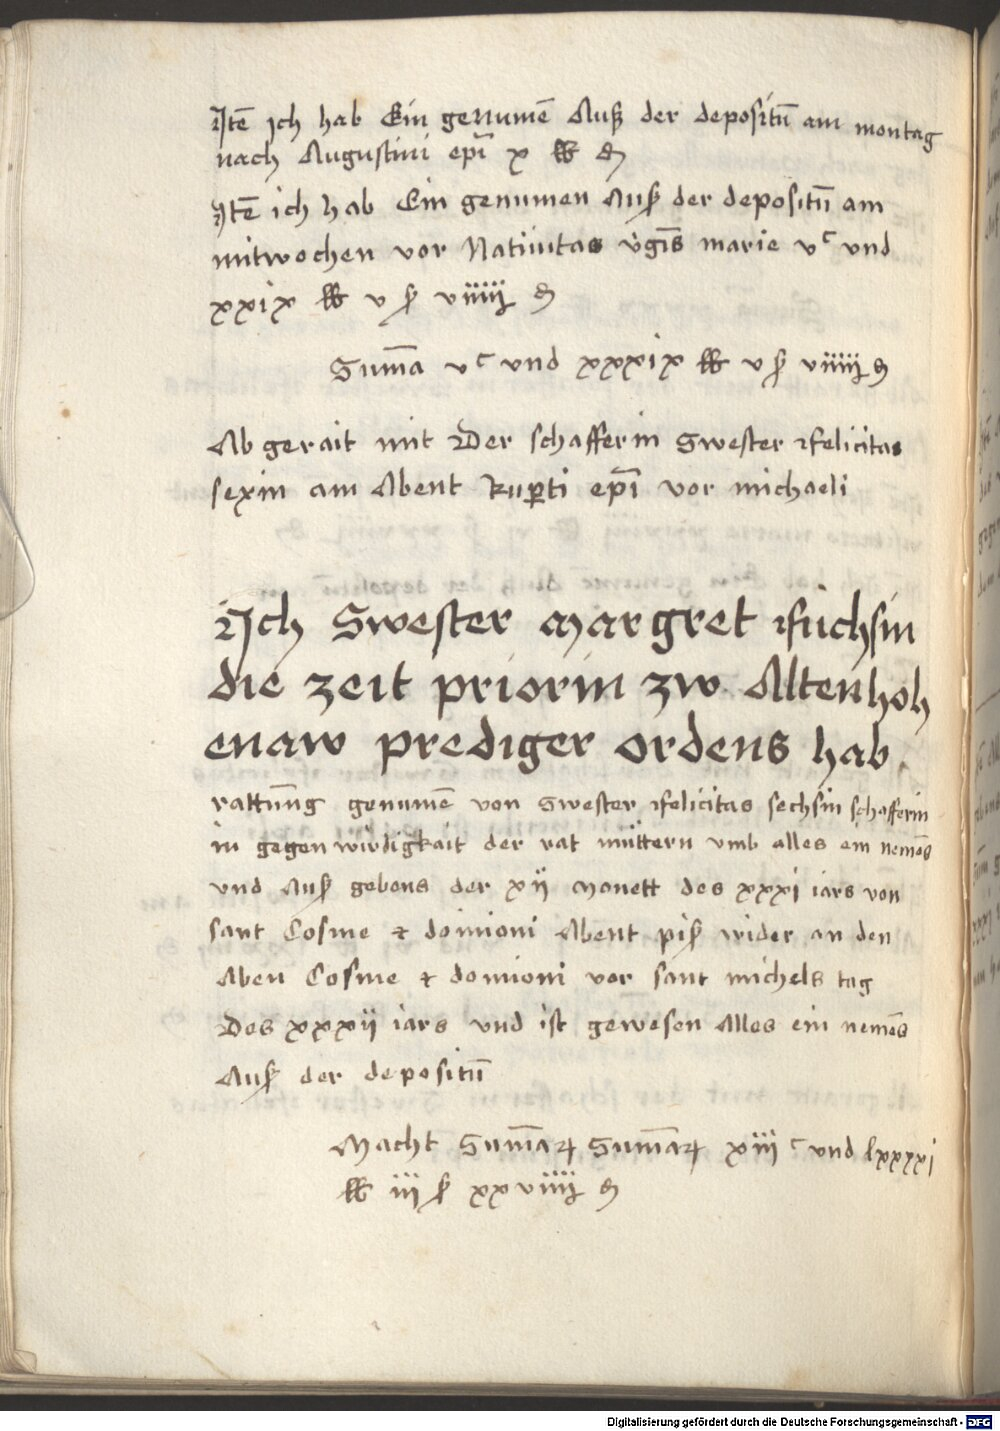 Itē ich hab Ein genumē Auß der depositū am montag
nach Augustini epī x ℔ ₰
Itē ich hab Ein genumen Auß der depositū am
mitwochen vor Natiuitas v̄gīs marie vᶜ und
xxix ℔ v ß viiij ₰
Sum̄a vᶜ und xxxix ℔ v ß viiij ₰
Ab gerait mit Der schafferin Swester Felicitas
sexin am Abent Ruꝑti epī vor michaeli
Ich Swester Margret Füchsin
die zeit priorin zw Altenhoh
enaw prediger ordens hab
rattūng genumē von Swester Felicitas sechsin schafferin
in gegen wirdigkait der rat müttern vmb alles ein nemēs
und Auß gebens der xij Monett des xxxi iars von
sant Cosme et domioni Abent piß wider an den
Aben Cosme et domioni vor sant michels tag
Des xxxij iars und ist gewesen Alles ein nemēs
Auß der depositū
Macht Sum̄aꝝ Sum̄aꝝ xiijᶜ und lxxxxi
℔ iij ß xxviiij ₰
Digitalisierung gefördert durch die Deutsche Forschungsgemeinschaft - DFG